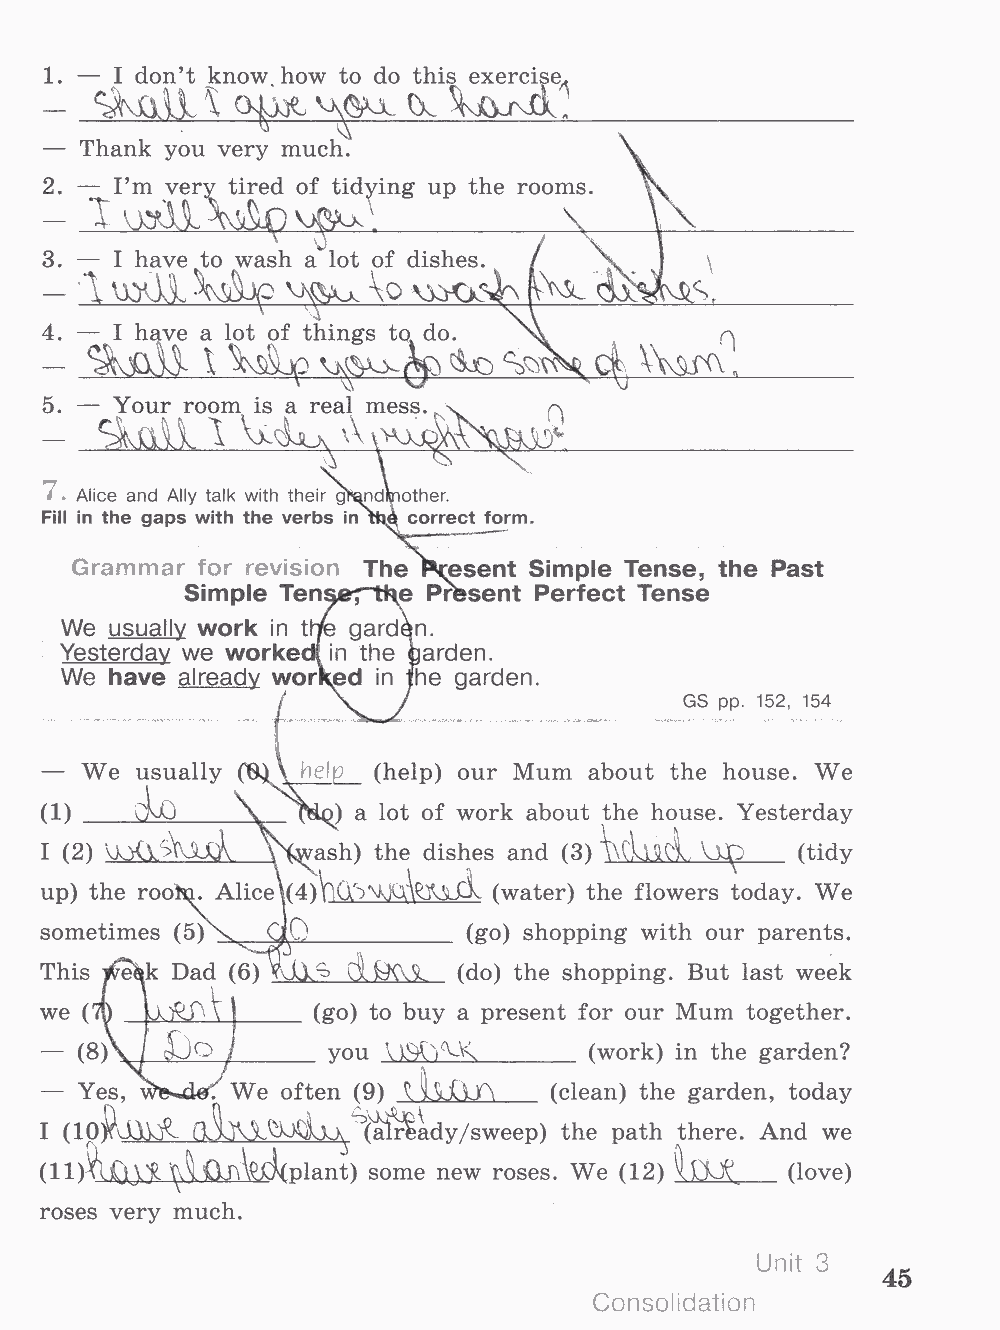 1. — I don't know how to do this exercise.
— Shall I give you a hand?
— Thank you very much.
2. — I'm very tired of tidying up the rooms.
— I will help you!
3. — I have to wash a lot of dishes.
— I will help you to wash the dishes!
4. — I have a lot of things to do.
— Shall I help you to do some of them?
5. — Your room is a real mess.
— Shall I tidy it right now?
7. Alice and Ally talk with their grandmother.
Fill in the gaps with the verbs in the correct form.
Grammar for revision The Present Simple Tense, the Past
Simple Tense, the Present Perfect Tense
We usually work in the garden.
Yesterday we worked in the garden.
We have already worked in the garden.
GS pp. 152, 154
— We usually (0) help (help) our Mum about the house. We
(1) do (do) a lot of work about the house. Yesterday
I (2) washed (wash) the dishes and (3) tidied up (tidy
up) the room. Alice (4) has watered (water) the flowers today. We
sometimes (5) go (go) shopping with our parents.
This week Dad (6) has done (do) the shopping. But last week
we (7) went (go) to buy a present for our Mum together.
— (8) Do you work (work) in the garden?
— Yes, we do. We often (9) clean (clean) the garden, today
I (10) have already swept (already/sweep) the path there. And we
(11) have planted (plant) some new roses. We (12) love (love)
roses very much.
Unit 3
45
Consolidation